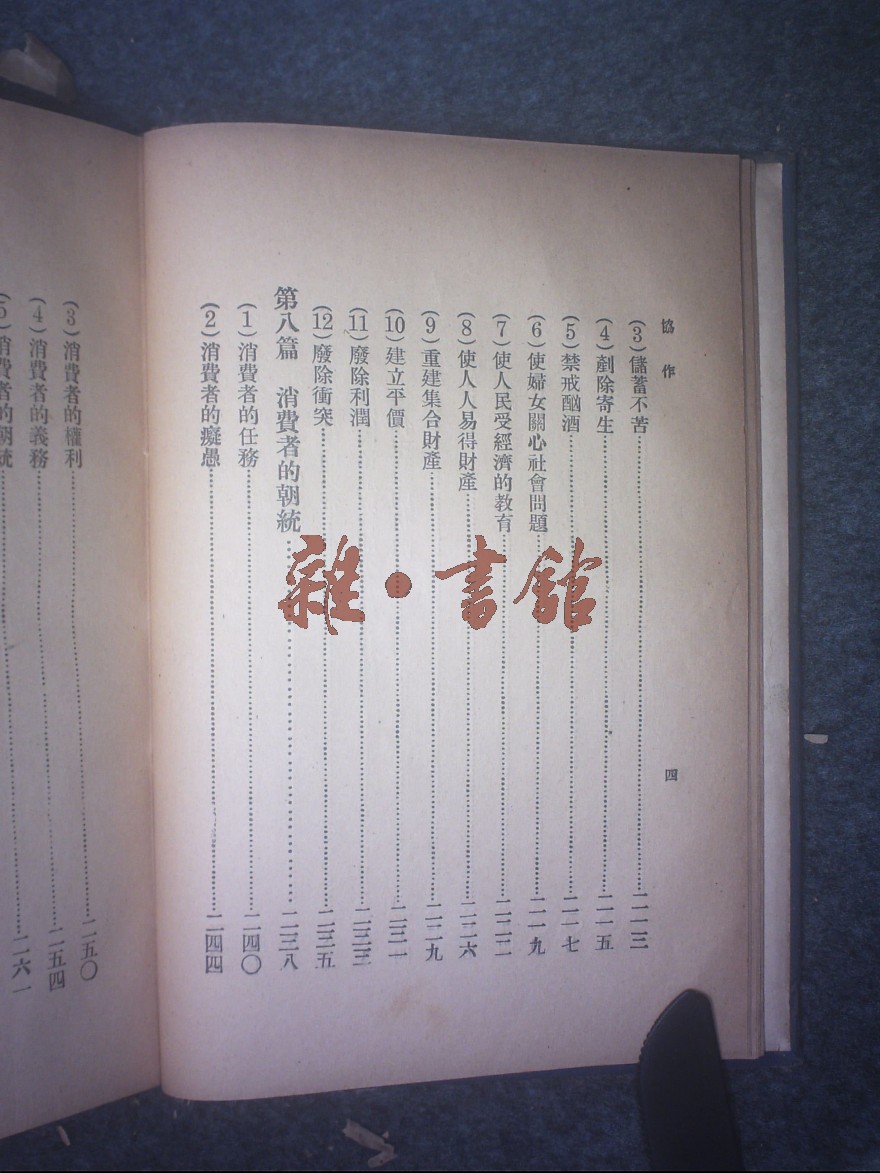 協作
四
(3)儲蓄不苦……二一三
(4)剷除寄生……二一五
(5)禁戒酗酒……二一七
(6)使婦女關心社會問題……二一九
(7)使人民受經濟的教育……二二二
(8)使人人易得財產……二二六
(9)重建集合財產……二二九
(10)建立平價……二三一
(11)廢除利潤……二三三
(12)廢除衝突……二三五
第八篇 消費者的朝統……二三八
(1)消費者的任務……二四〇
(2)消費者的癡愚……二四四
(3)消費者的權利……二五〇
(4)消費者的義務……二五四
(5)消費者的朝統……二六一
雜·書館